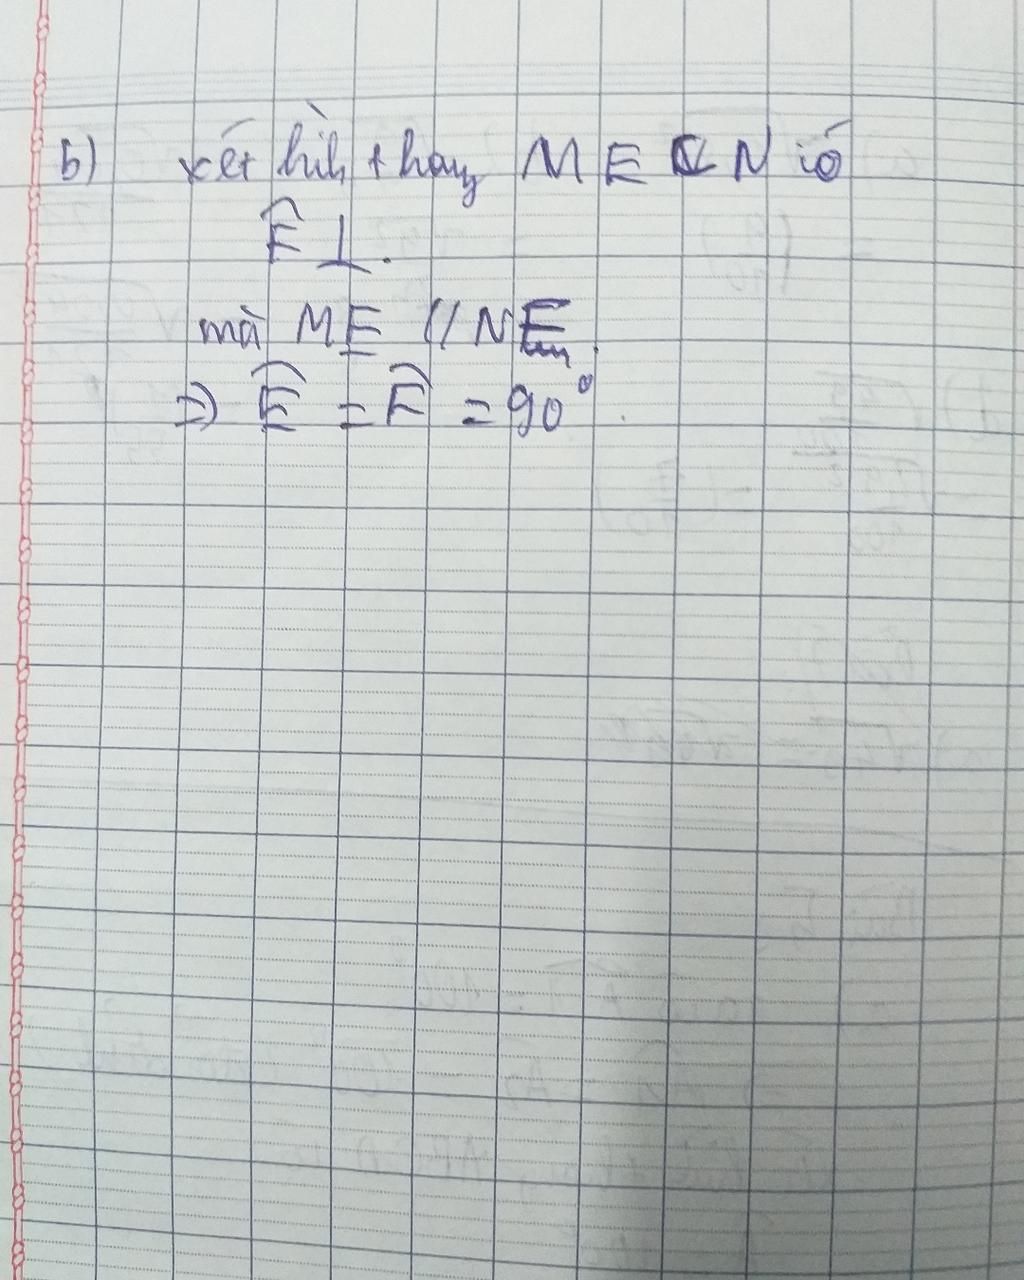 b) xét hìh thay MECN có
Ê ⊥.
mà ME // NE.
=> Ê = F̂ = 90°.